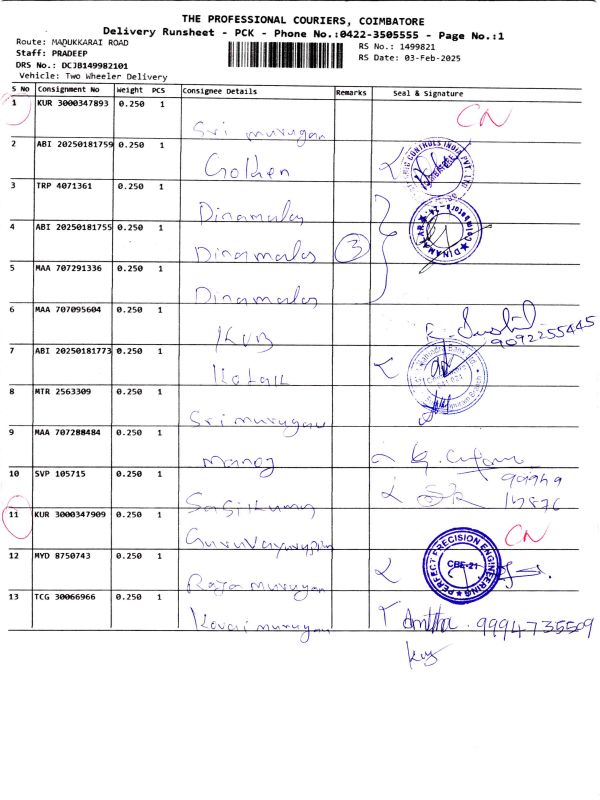 THE PROFESSIONAL COURIERS, COIMBATORE
Delivery Runsheet - PCK - Phone No.:0422-3505555 - Page No.:1
Route: MADUKKARAI ROAD
Staff: PRADEEP
DRS No.: DCJB149982101
Vehicle: Two Wheeler Delivery
RS No.: 1499821
RS Date: 03-Feb-2025
S No Consignment No Weight PCS Consignee Details Remarks Seal & Signature
1 KUR 3000347893 0.250 1 Sri murugan CN
2 ABI 20250181759 0.250 1 Golden
3 TRP 4071361 0.250 1 Dinamalar
4 ABI 20250181755 0.250 1 Dinamalar 3
5 MAA 707291336 0.250 1 Dinamalar
6 MAA 707095604 0.250 1 KVB 9092255445
7 ABI 20250181773 0.250 1 Kotak
8 MTR 2563309 0.250 1 Sri murugan
9 MAA 707288484 0.250 1 Manoj
10 SVP 105715 0.250 1 Sasikumar
11 KUR 3000347909 0.250 1 CN
12 MYD 8750743 0.250 1 Raja murugan
PERFECT PRECISION ENGINEERING
CBE-21
13 TCG 30066966 0.250 1 Kovai murugan 9994735509